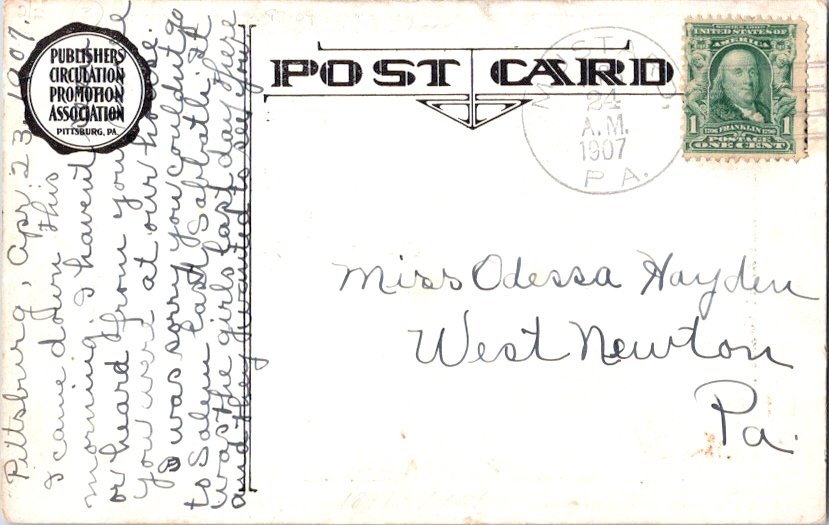 PUBLISHERS
CIRCULATION
PROMOTION
ASSOCIATION
PITTSBURG, PA.
POST CARD
24
A.M.
1907
PA.
SERIES 1902
UNITED STATES OF
AMERICA
1 1706 FRANKLIN 1790 1
POSTAGE
ONE CENT
Miss Odessa Hayden
West Newton
Pa.
Pittsburg, Apr 23, 1907.
I came down this
morning. I havent
or heard from you
you were at our house.
I was sorry you couldnt go
to Salem last Sabbath. It
was the girls last day there
and they wanted to see you